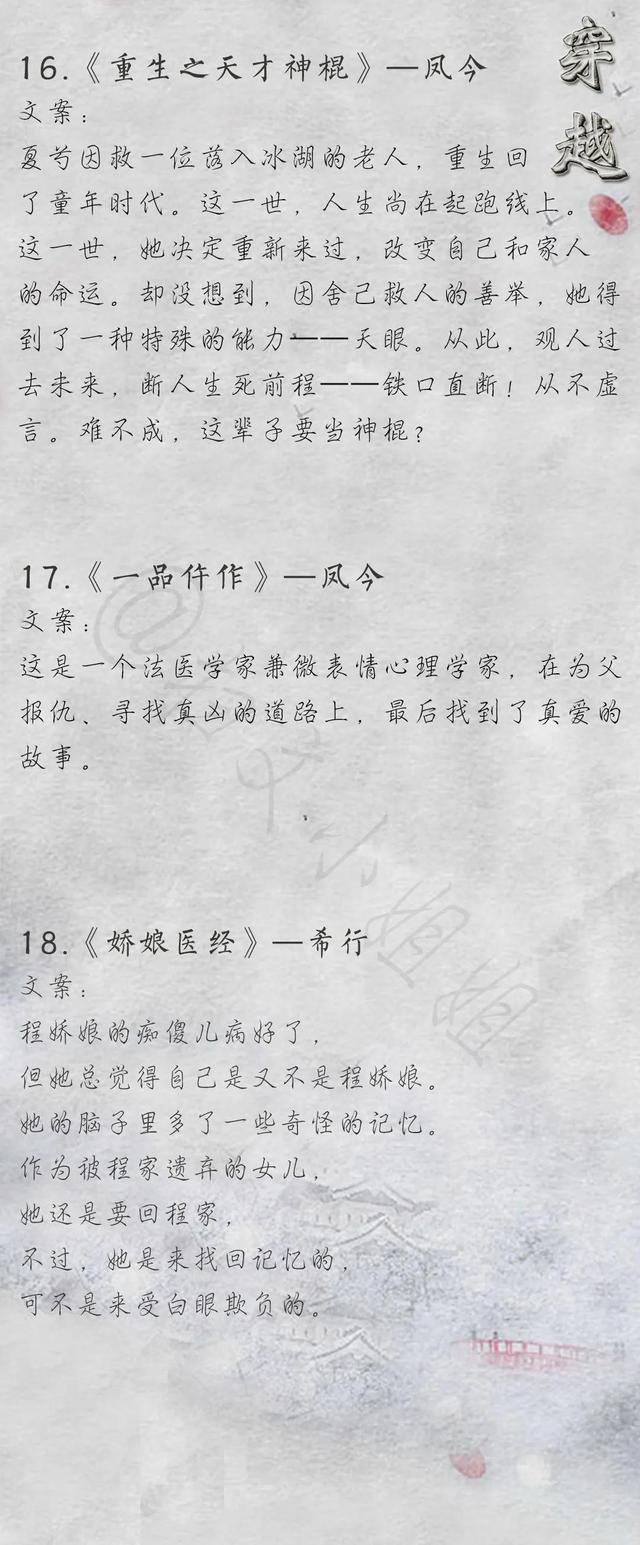 穿越
16.《重生之天才神棍》—凤今
文案：
夏芍因救一位落入冰湖的老人，重生回
了童年时代。这一世，人生尚在起跑线上。
这一世，她决定重新来过，改变自己和家人
的命运。却没想到，因舍己救人的善举，她得
到了一种特殊的能力——天眼。从此，观人过
去未来，断人生死前程——铁口直断！从不虚
言。难不成，这辈子要当神棍？
17.《一品仵作》—凤今
文案：
这是一个法医学家兼微表情心理学家，在为父
报仇、寻找真凶的道路上，最后找到了真爱的
故事。
18.《娇娘医经》—希行
文案：
程娇娘的痴傻儿病好了，
但她总觉得自己是又不是程娇娘。
她的脑子里多了一些奇怪的记忆。
作为被程家遗弃的女儿，
她还是要回程家，
不过，她是来找回记忆的，
可不是来受白眼欺负的。